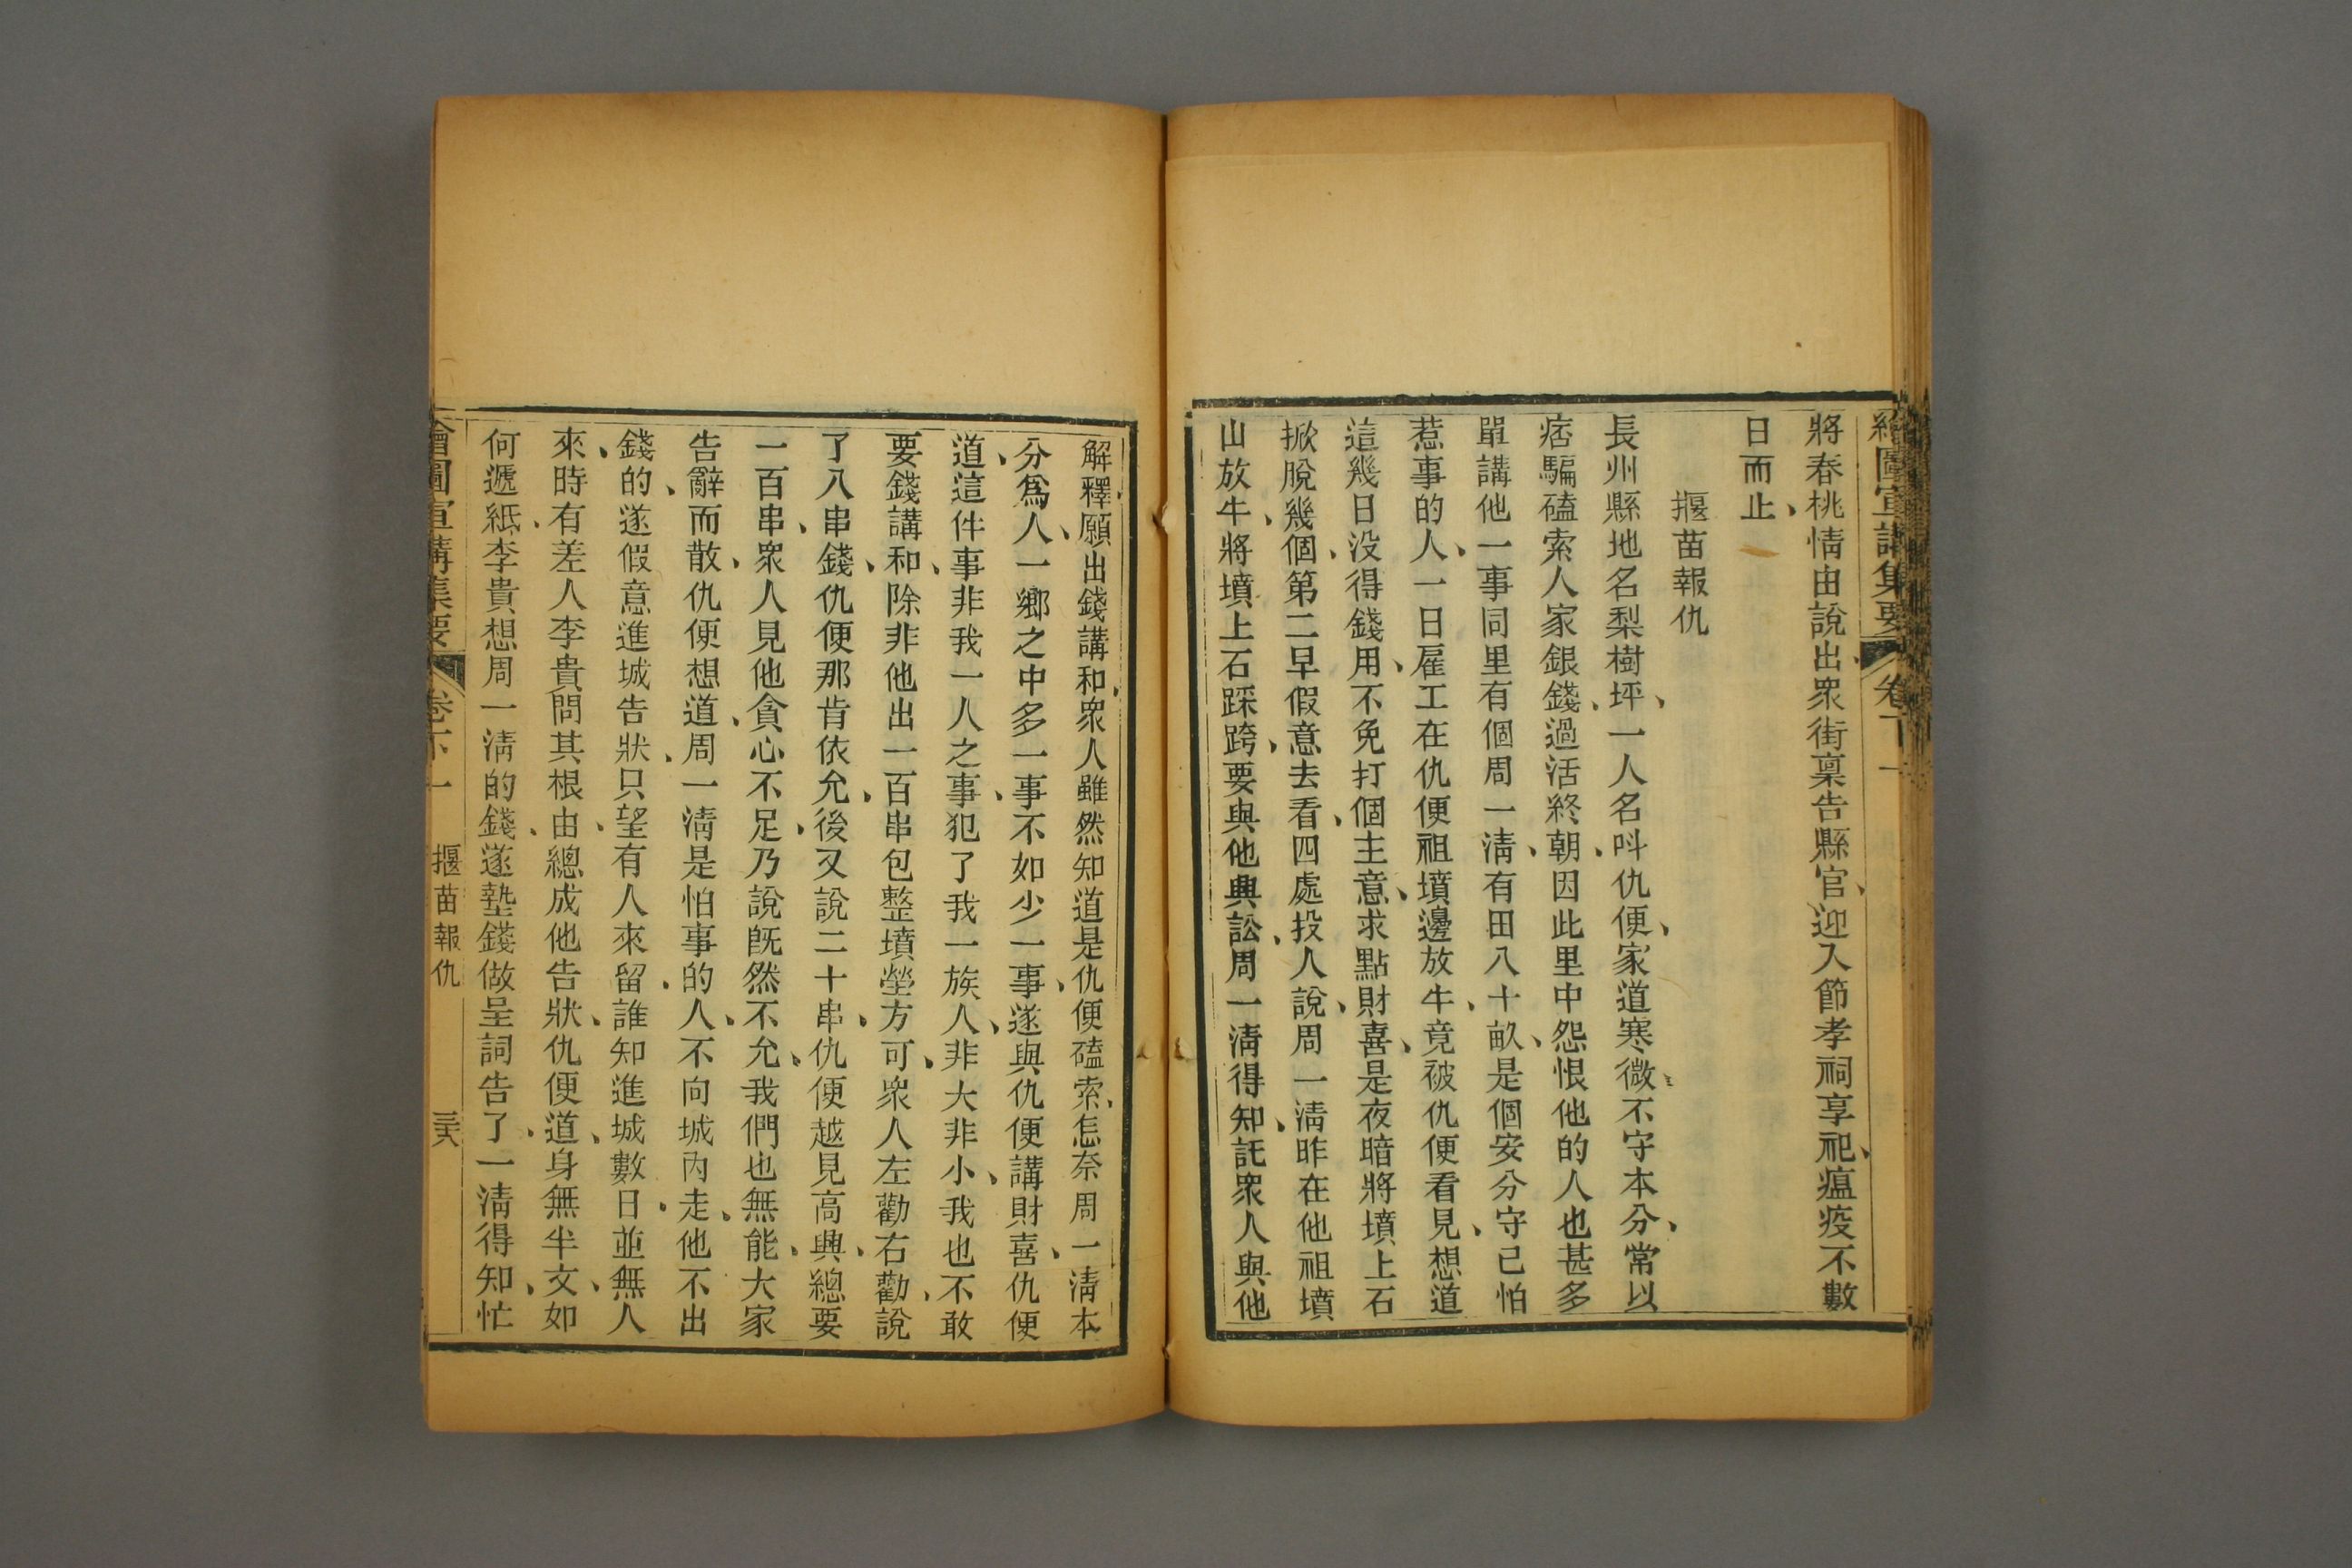 繪圖宣講集要 卷下一
將春桃情由說出、眾街稟告縣官、迎入節孝祠享祀、瘟疫不數
日而止、
揠苗報仇
長州縣地名梨樹坪、一人名呌仇便、家道寒微、不守本分、常以
痞騙磕索人家銀錢、過活終朝、因此里中怨恨他的人也甚多
單講他一事同里有個周一淸、有田八十畝、是個安分守己怕
惹事的人、一日雇工在仇便祖墳邊放牛、竟被仇便看見、想道
這幾日没得錢用、不免打個主意、求點財喜、是夜暗將墳上石
掀脫幾個、第二早假意去看、四處投人說、周一淸昨在他祖墳
山放牛、將墳上石踩跨、要與他興訟、周一淸得知、託眾人與他
解釋、願出錢講和、眾人雖然知道是仇便磕索、怎奈周一淸本
分爲人、一鄉之中多一事不如少一事、遂與仇便講財喜、仇便
道、這件事非我一人之事、犯了我一族人、非大非小、我也不敢
要錢講和、除非他出一百串包整墳塋方可、眾人左勸右勸、說
了八串錢、仇便那肯依允、後又說二十串、仇便越見高興、總要
一百串、眾人見他貪心不足、乃說旣然不允、我們也無能、大家
告辭而散、仇便想道、周一淸是怕事的人、不向城內走、他不出
錢的、遂假意進城告狀、只望有人來留、誰知進城數日、並無人
來、時有差人李貴問其根由、總成他告狀、仇便道、身無半文、如
何遞紙、李貴想周一淸的錢、遂墊錢做呈詞告了、一淸得知、忙
繪圖宣講集要 卷下一 揠苗報仇 三六